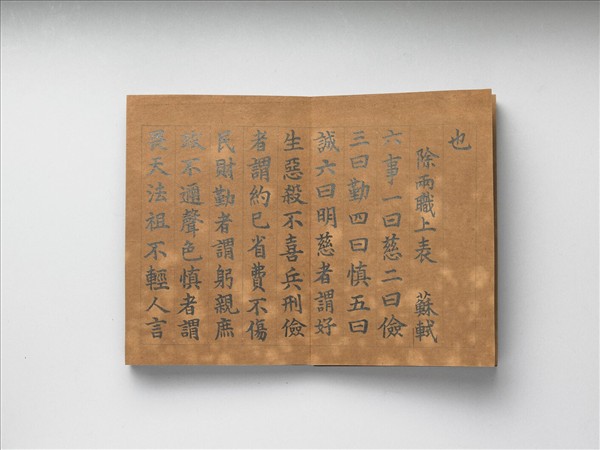 也
除兩職上表 蘇軾
六事一曰慈二曰儉
三曰勤四曰慎五曰
誠六曰明慈者謂好
生惡殺不喜兵刑儉
者謂約己省費不傷
民財勤者謂躬親庶
政不邇聲色慎者謂
畏天法祖不輕人言